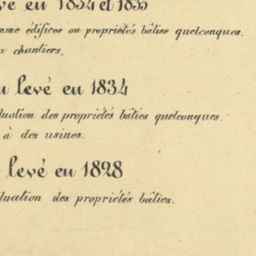 vé en 1834 et 1835
mme édifices ou propriétés bâties quelconques.
x chantiers.
u levé en 1834
luation des propriétés bâties quelconques.
à des usines.
levé en 1828
luation des propriétés bâties.